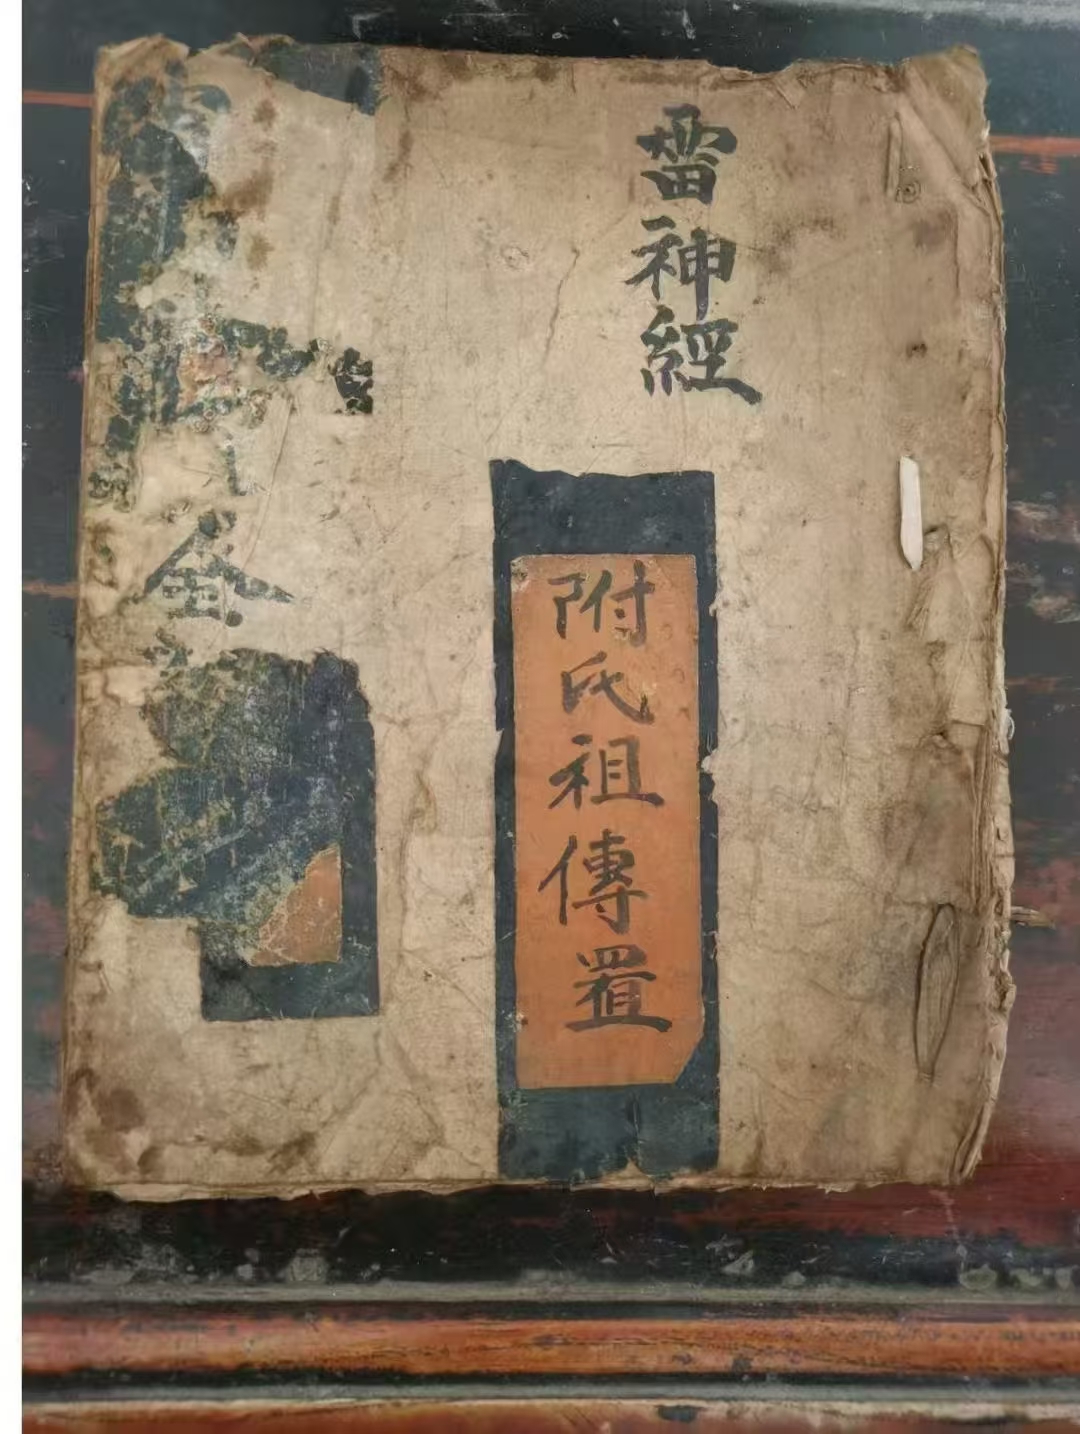 雷神經
附氏祖傳置
金